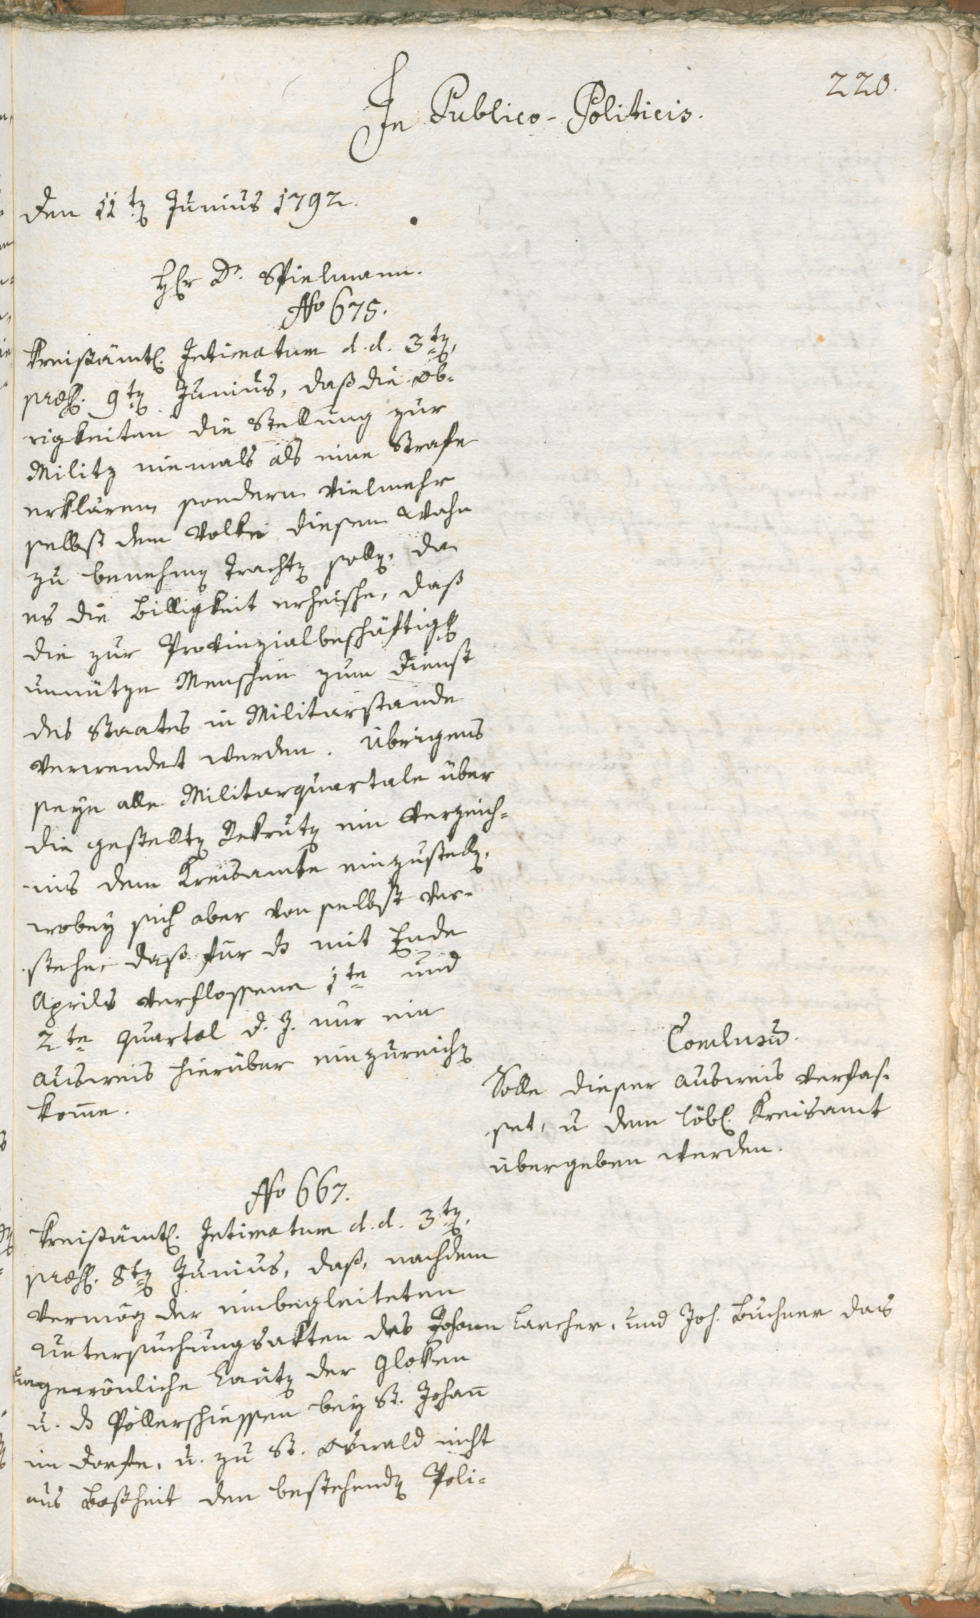 220.
In Publico-Politicis.
Den 11tn Junius 1792.
Hr Dr. Spielmann.
No 675.
Kreißämtl. Intimatum d. d. 3tn,
præs. 9tn Junius, daß die Ob-
rigkeiten die Stellung zur
Militz niemals als eine Strafe
erklären, sondern vielmehr
selbst dem Volke diesen Wahn
zu benehmen trachten sollen, da
es die Billigkeit erheische, daß
die zur Provinzialbeschäftigung
unnütze Menschen zum Dienst
des Staates in Militarstande
verwendet werden. Übrigens
seye alle Militarquartale über
die gestellten Rekruten ein Verzeich-
nis dem Kreisamte einzustellen,
wobey sich aber von selbst ver-
stehe, daß für das mit Ende
Aprils verflossene 1te und
2te Quartal d. J. nur ein
Ausweis hierüber einzureichen
kome.
Conclusum.
Solle dieser Ausweis verfas-
set, u dem löbl. Kreisamt
übergeben werden.
No 667.
Kreißämtl. Intimatum d. d. 3tn,
præs. 8tn Junius, daß, nachdem
vermög der einbegleiteten
Untersuchungsakten des Johann Larcher, und Joh. Büchner das
ungewönliche Läuten der Gloken
u. das Pöllerschiessen bey St. Johann
im Dorfe, u. zu St. Oswald nicht
aus Boßheit den bestehenden Poli-